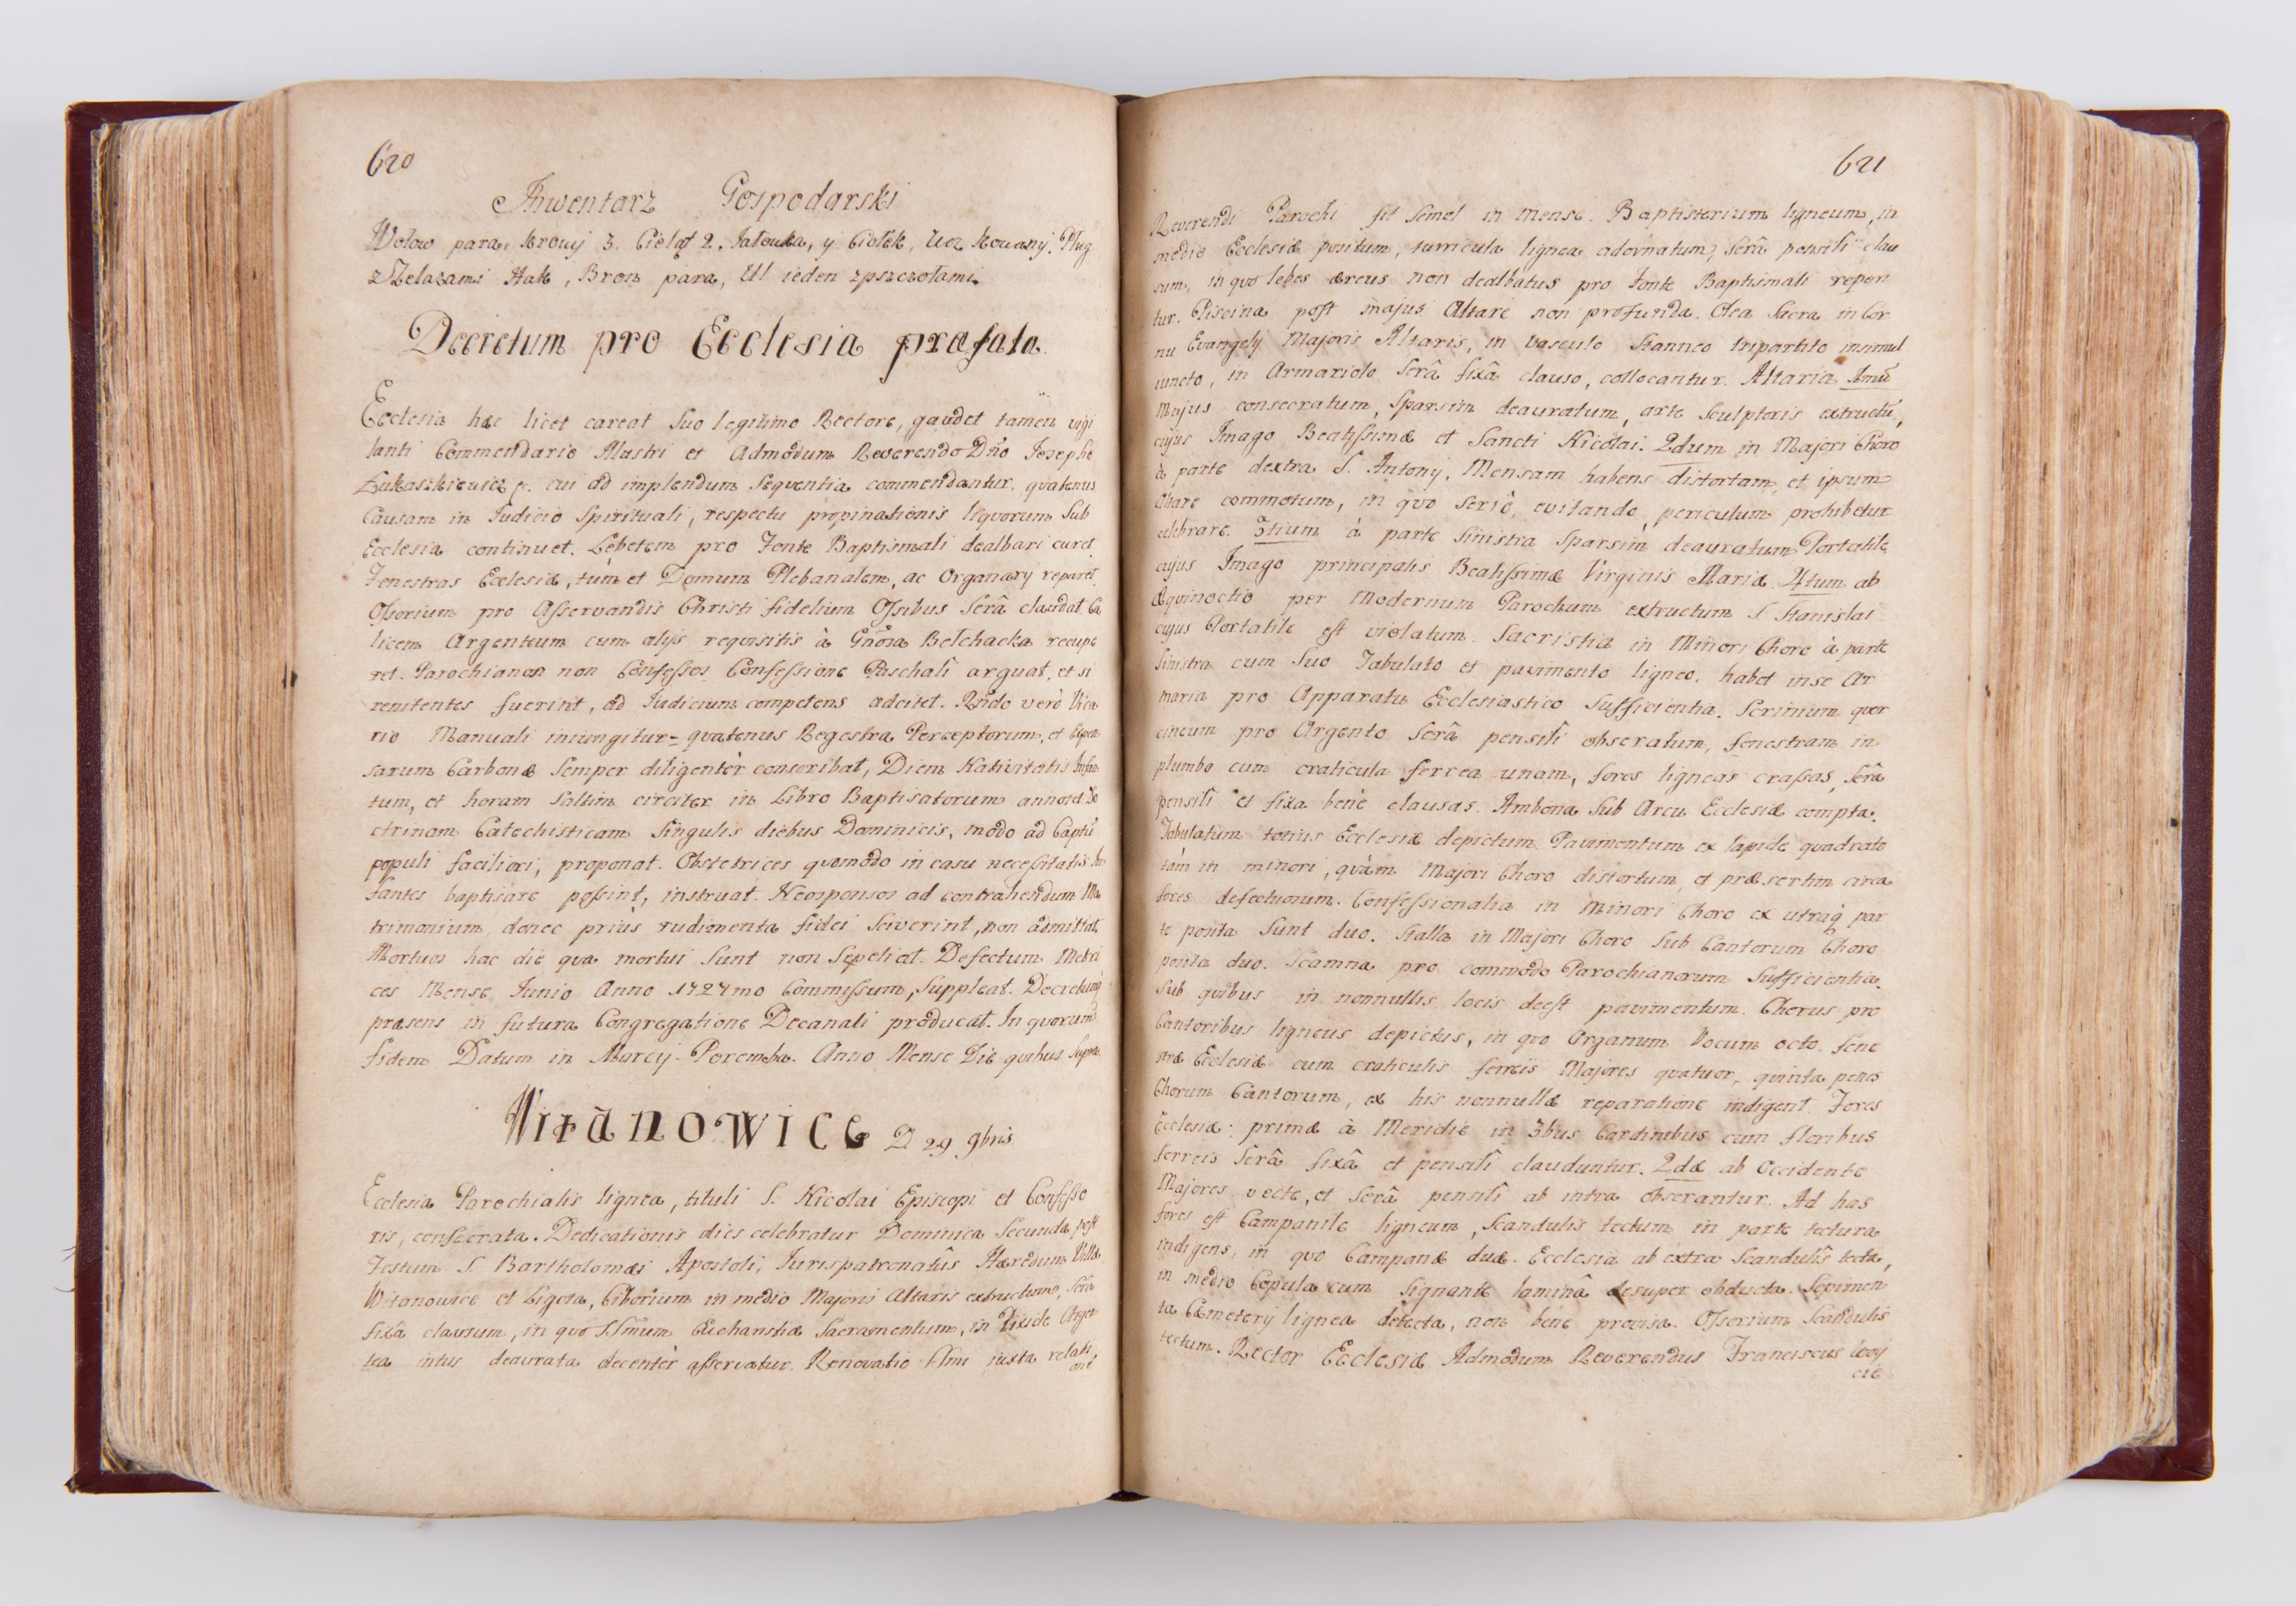 620
Inwentarz Gospodarski
Wołow para, krowy 3. Cieląt 2. Jałowka, y Ciołek, Woz kowany. Pług
z Zelazami Hak, Bron para, Ul ieden zpszczołami.
Decretum pro Ecclesia præfata.
Ecclesia hæc licet careat suo legitimo Rectore, gaudet tamen vigi
lanti Commendario Illustri et Admodum Reverendo Dño Josepho
Łukaszkiewicz cui ad implendum sequentia commendantur, quatenus
Causam in Judicio Spirituali, respectu propinationis liquorum sub
Ecclesia continuet. Lebetem pro Fonte Baptismali dealbari curet
Fenestras Ecclesiæ, tùm et Domum Plebanalem, ac Organarij reparet
Ossorium pro Asservandis Christi fidelium Ossibus Serâ claudat. Ca
licem Argenteum cum alijs requisitis à Gñosa Bełchacka recupe
ret. Parochianos non Confessos Confessione Paschali arguat, et si
renitentes fuerint, ad Judicium competens adcitet. Rñdo verò Vica
rio Manuali iniungitur= quatenus Regestra Perceptorum, et Expen
sarum Carbonæ semper diligentèr conscribat, Diem Nativitatis Infan
tum, et horam saltim circiter in Libro Baptisatorum annotet Do
ctrinam Catechisticam singulis diebus Dominicis, modo ad Captũ
populi faciliori, proponat. Obstetrices quomodo in casu necessitatis In
fantes baptisare possint, instruat. Neosponsos ad contrahendum Ma
trimonium, donec priùs rudimenta fidei sciverint, non admittat
Mortuos hac die qua mortui sunt non sepeliat. Defectum Metri
ces Mense Junio Anno 1727mo Commissum, suppleat. Decretumq
præsens in futura Congregatione Decanali producat. In quorum
fidem Datum in Marcij-Poremba. Anno Mense Die quibus supra.
Witanowice D 29 9bris
Ecclesia Parochialis lignea, tituli S. Nicolai Episcopi et Confesso
ris, consecrata. Dedicationis dies celebratur Dominica Secunda post
Festum S. Bartholomæi Apostoli, Jurispatronatûs Hæredum Villæ
Witanowice et Ligota, Ciborium in medio Majoris Altaris extructum, Serâ
fixâ clausum, in quo SSmum Eucharistiæ Sacramentum, in Pixide Argen
tea intus deaurata decentèr asservatur. Renovatio SSmi iuxta relati,
one
621
Reverendi Parochi fit semel in mense. Baptisterium ligneum, in
medio Ecclesiæ positum, turricula lignea adornatum, serâ pensili clau
sum, in quo lebes æreus non dealbatus pro Fonte Baptismali reperi
tur. Piscina post majus Altare non profunda. Olea Sacra in Cor
nu Evangelij Majoris Altaris, in Vasculo Stanneo tripartito insimul
iuncto, in Armariolo Serâ fixâ clauso, collocantur. Altaria 1mũ
Majus consecratum, sparsim deauratum, arte sculptoris extructũ,
cujus Imago Beatissimæ et Sancti Nicolai. 2dum in Majori Choro
à parte dextra S. Antonij. Mensam habens distortam, et ipsum
Altare commotum, in quo seriò, evitando periculum prohibetur
celebrare. 3tium à parte Sinistra sparsim deauratum Portatile
cujus Imago principalis Beatissimæ Virginis Mariæ. 4tum ab
Æquinoctio per Modernum Parochum extructum S Stanislai
cujus Portatile est violatum. Sacristia in Minori Choro à parte
sinistra cum suo Tabulato et pavimento ligneo. habet in se Ar
maria pro Apparatu Ecclesiastico sufficientia. Scrinium quer
cineum pro Argento Serâ pensili obseratum, fenestram in
plumbo cum craticula ferrea unam, fores ligneas crassas, Serâ
pensilî et fixa benè clausas. Ambona sub Arcu Ecclesiæ compta.
Tabulatum totius Ecclesiæ depictum. Pavimentum ex lapide quadrato
tàm in minori, quàm Majori Choro distortum, et præsertim circa
fores defectuosum. Confessionalia in Minori Choro ex utraq par
te posita sunt duo. Stalla in Majori Choro sub Cantorum Choro
posita duo. Scamna pro commodo Parochianorum sufficientia.
sub quibus in nonnullis locis deest pavimentum. Chorus pro
Cantoribus ligneus depictus, in quo Organum Vocum octo. Fene
stræ Ecclesiæ cum craticulis ferreis Majores quatuor, quinta penes
Chorum Cantorum, ex his nonnullæ reparatione indigent. Fores
Ecclesiæ: primæ à Meridie in 3bus Cardinibus cum floribus
ferreis Serâ fixâ et pensilî clauduntur. 2dæ ab Occidente
Majores vecte, et Serâ pensilî ab intra obserantur. Ad has
fores est Campanile ligneum, scandulis tectum in parte tectura
indigens, in quo Campanæ duæ. Ecclesia ab extra Scandulis tecta,
in medio Copula cum signante laminâ desuper obducta. Sepimen
ta Cæmeterij lignea detecta, non bene provisa. Ossorium Scandulis
tectum. Rector Ecclesiæ Admodum Reverendus Franciscus Woy
cie